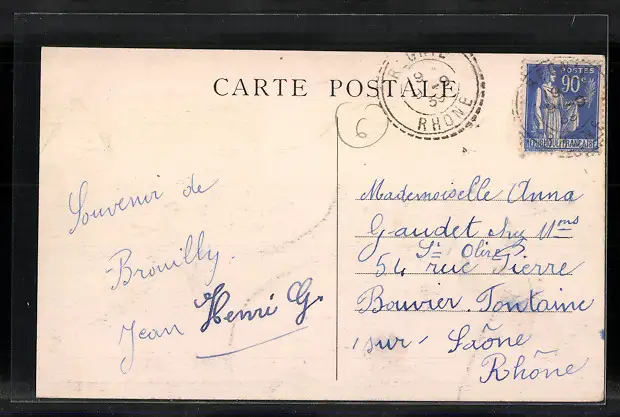 CARTE POSTALE
RHONE
POSTES
90c
6
Souvenir de
Brouilly.
Jean Henri G.
Mademoiselle Anna
Gaudet chez
St Olire
54 rue Pierre
Bouvier. Fontaine
sur Saône
Rhône